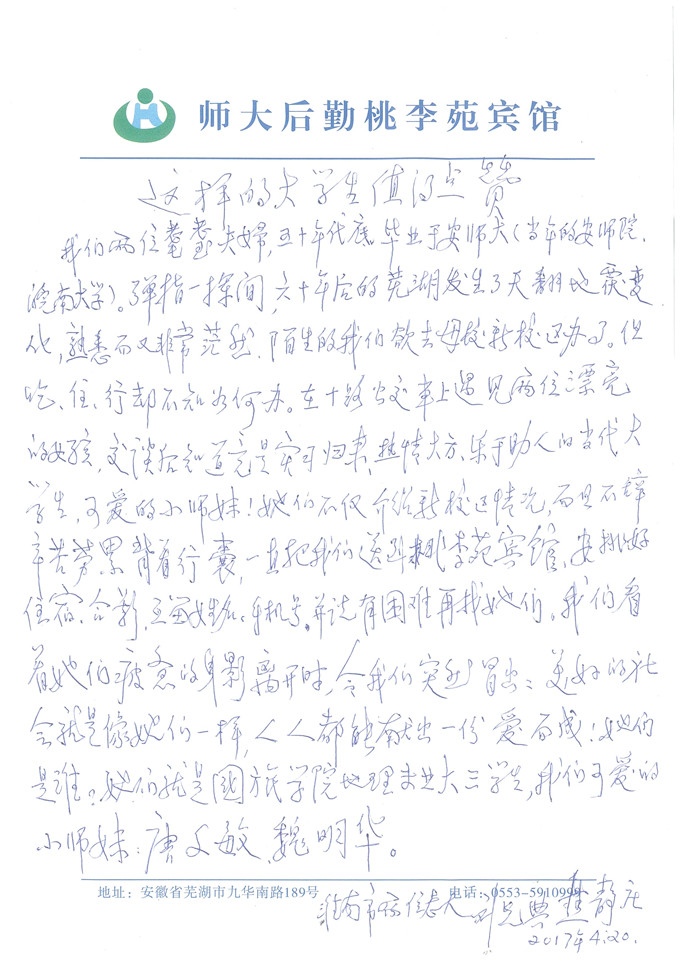 师大后勤桃李苑宾馆
这样的大学生值得点赞
我们两位耄耋夫婦,五十年代底毕业于安师大(当年的安师院、
皖南大学)。弹指一挥间,六十年后的芜湖发生了天翻地覆变
化,熟悉而又非常茫然.陌生的我们欲去母校新校区办了。但
吃、住、行却不知如何办。在十路公交車上遇見两位漂亮
的女孩,交谈后知道竟是宾可归来,热情大方、乐于助人的当代大
学生,可爱的小师妹!她们不仅介绍新校区情况,而且不辞
辛苦劳累背着行囊,一直把我们送到桃李苑宾馆,安排好
住宿.合影.互留姓名、手机号。并说有困难再找她们。我们看
着她们疲惫的身影离开时,令我们突然冒出:美好的社
会就是像她们一样,人人都能献出一份爱而成!她们
是谁?她们就是國旅学院地理专业大三学生,我们可爱的
小师妹:唐文敏、魏明华。
地址:安徽省芜湖市九华南路189号 电话:0553-5910999
淮南市 静
2017年4.20.